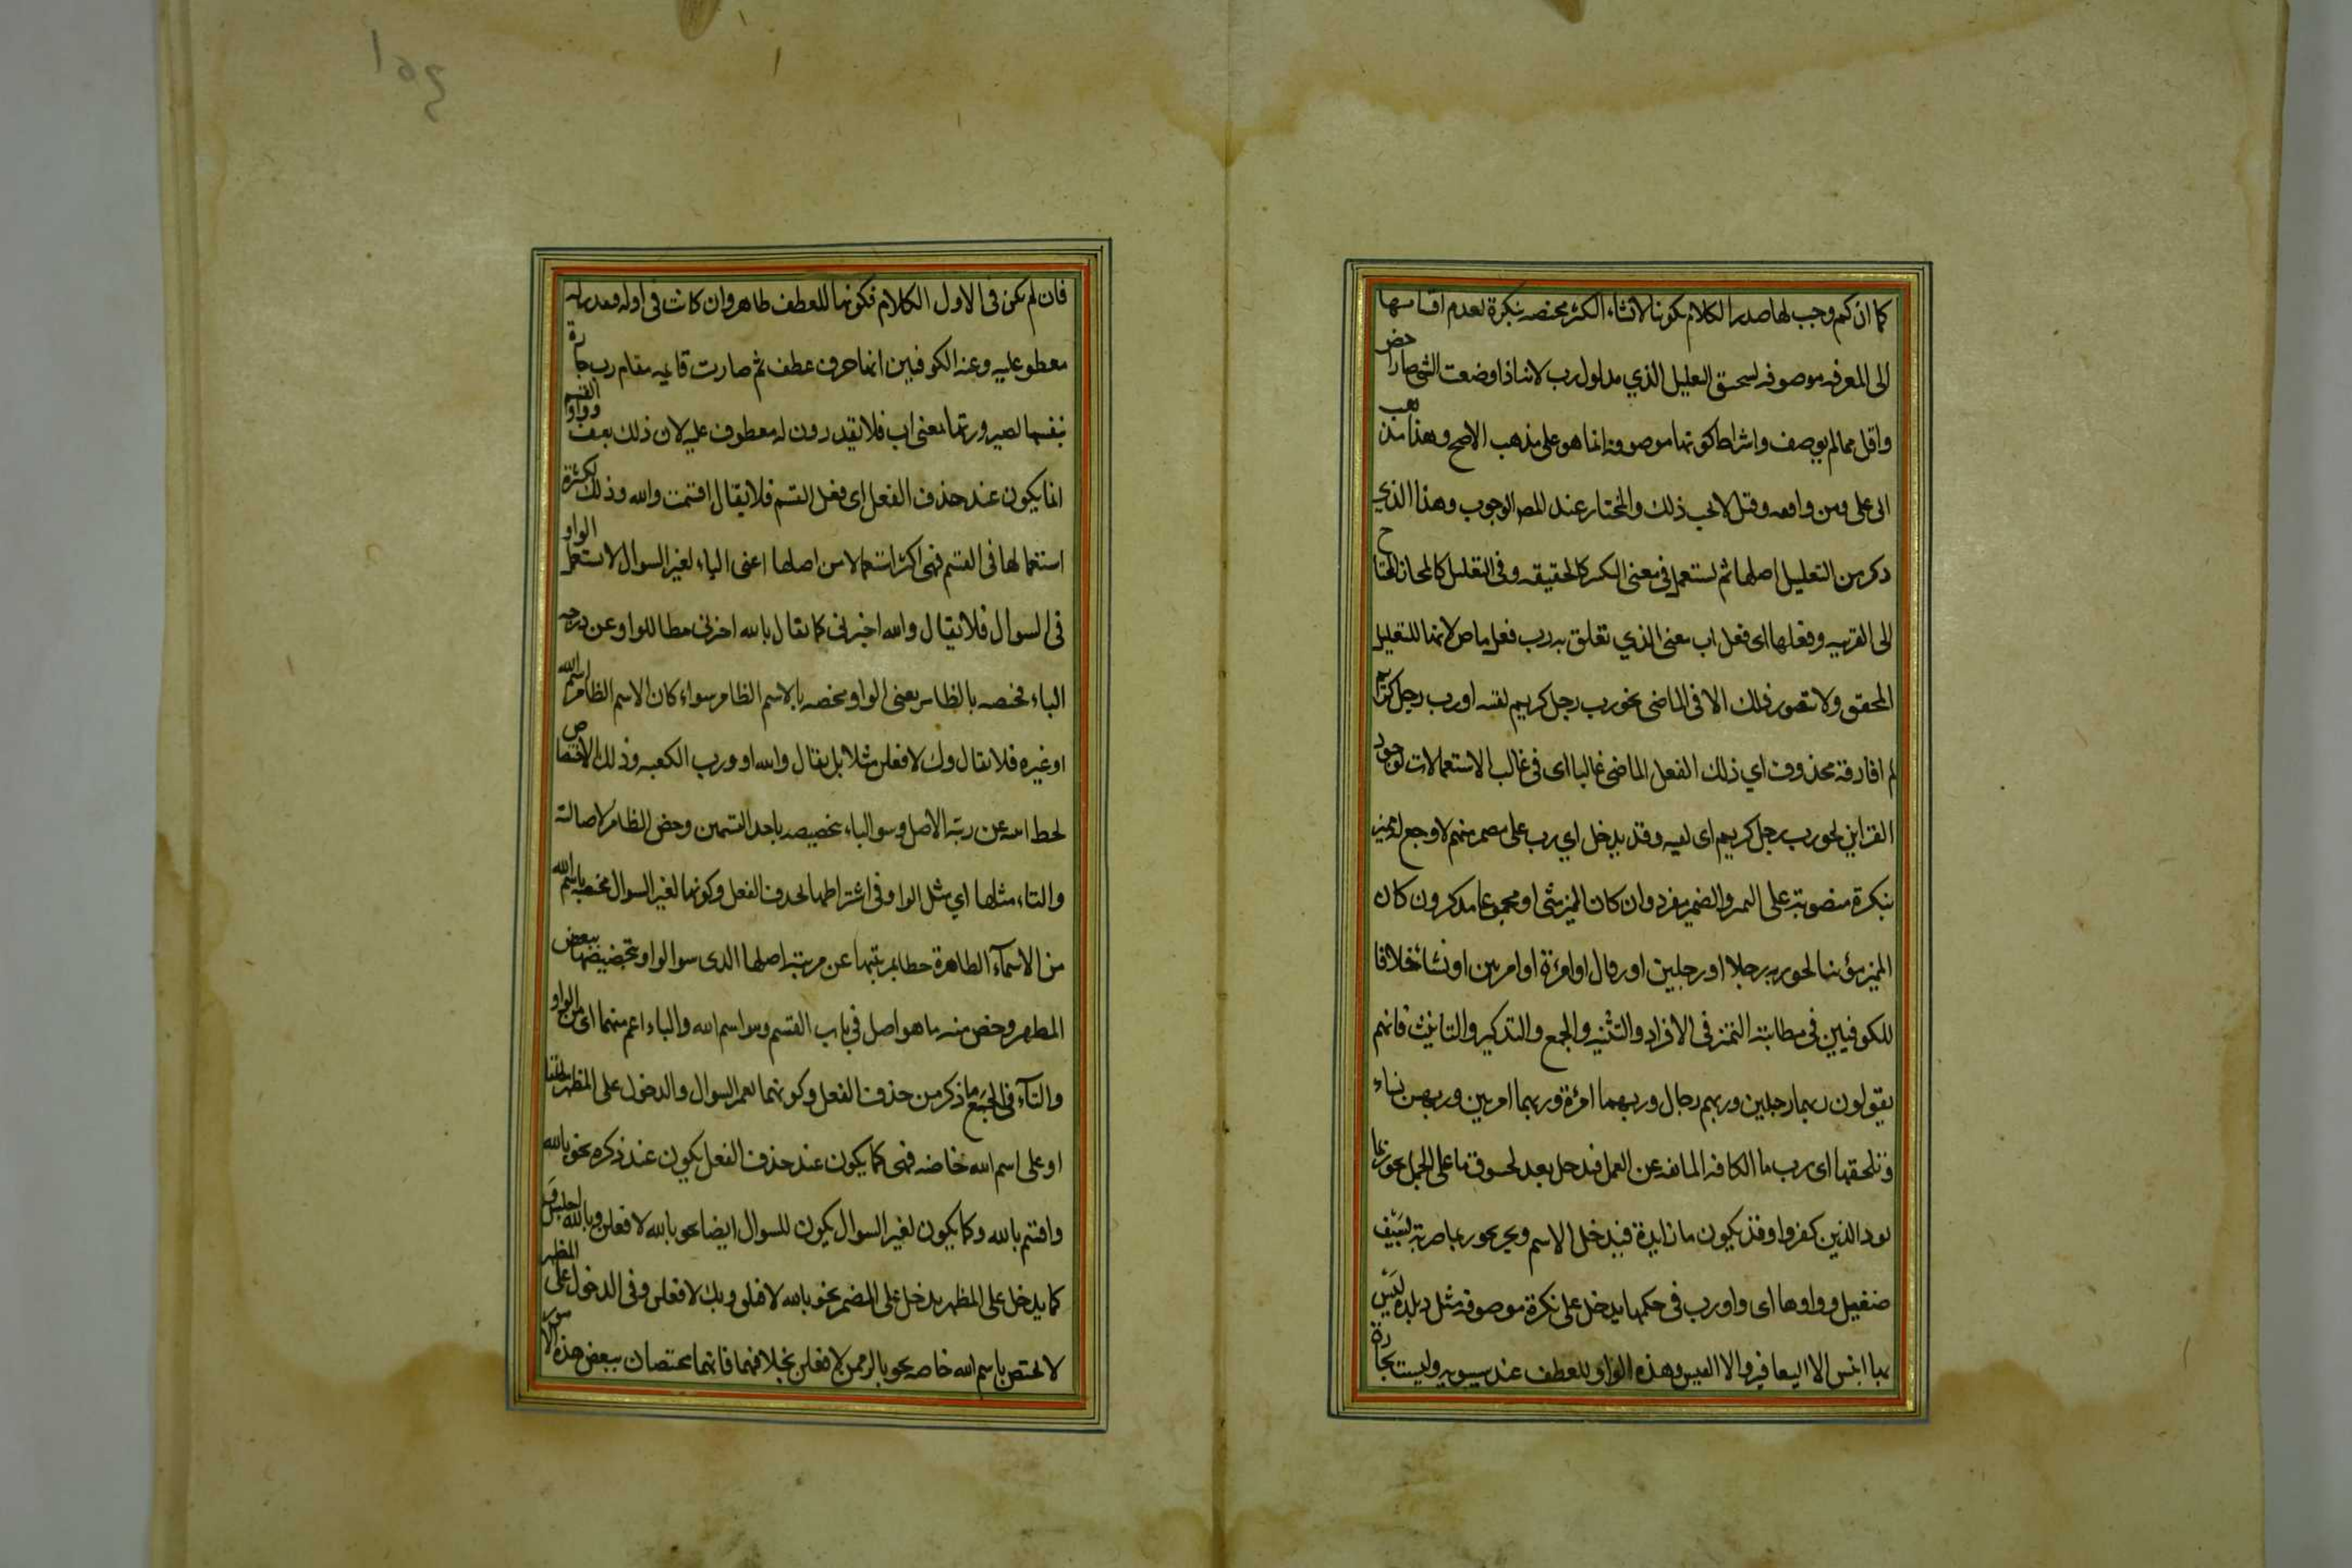 كما ان كم وجب لها صدر الكلام لكونها لانشاء الكثر مختصه بنكرة لعدم
الى المعرفه موصوفه لسحق التعليل الذي مدلول رب لانه اذا وضعت الشئ صار اخص
واقل مما لم يوصف واشراط كونها موصوفه انما هو على مذهب الاصح وهذا مذهب
ابى على ومن وافقه وقيل لا يجب ذلك والمختار عند المصـ الوجوب وهذا الذي
ذكر من التعليل اصلها ثم تستعمل فى معنى التكثير كالحقيقه وفى التقليل كالمجاز المحتاج
الى القرينه وفعلها اى فعل رب بمعنى الذي تعلق به رب فعل ماض لانها للتقليل
المحقق ولا يتصور ذلك الا فى الماضى نحو رب رجل كريم لقيته او رب رجل كريم
لم افارقه محذوف اي ذلك الفعل الماضى غالبا اى فى غالب الاستعمالات لوجود
القراين نحو رب رجل كريم اى لقيته وقد يدخل اي رب على مضمر مبهم لا مرجع له مميز
بنكرة منصوبة على التميز والضمير مفرد وان كان المميز مثنى او مجموعا مذكر وان كان
المميز مؤنثا نحو ربه رجلا او رجلين او رجال او امرءة او امرتين او نساء خلافا
للكوفيين فى مطابقة التميز فى الافراد والتثنيه والجمع والتذكير والتانيث فانهم
يقولون ربهما رجلين وربهم رجال وربها امرءة وربهما امرتين وربهن نساء
وتلحقها اى رب ما الكافه المانعه عن العمل فتدخل بعد لحوق ما على الجمل نحو ربما
يود الذين كفروا وقد يكون ما زايدة فيدخل الاسم ويجر نحو ربما ضربة بسيف
صقيل وواوها اى واو رب فى حكمها يدخل على نكرة موصوفه مثل وبلدة ليس
بها انيس الا اليعافير والا العيس وهذه الواو للعطف عند سيبويه وليست بجارة
فان لم يكن فى الاول الكلام فكونها للعطف ظاهر وان كانت فى اوله فيقدر له
معطوف عليه وعند الكوفيين انها حرف عطف ثم صارت قايمه مقام رب جارة
بنفسها لصيرورتها بمعنى رب فلا يقدرون له معطوف عليه لان ذلك تعسف وواو القسم
انما يكون عند حذف الفعل اى فعل القسم فلا يقال اقسمت والله وذلك لكثرة
استعمالها فى القسم فهى اكثر استعمالا من اصلها اعنى الباء لغير السوال لا تستعمل الواو
فى السوال فلا يقال والله اخبرنى كما يقال بالله اخبرنى حطا للواو عن درجه
الباء مختصه بالظاهر يعنى الواو مختصه بالاسم الظاهر سواء كان الاسم الظاهر اسم الله
او غيره فلا يقال وك لافعلن مثلا بل يقال والله او ورب الكعبه وذلك الاختصاص
لحطا له عن رتبة الاصل وهو الباء بتخصيصه باحد القسمين وخص الظاهر لاصالته
والتاء مثلها اي مثل الواو فى اشتراطها لحذف الفعل وكونها لغير السوال مختصه باسم الله
من الاسماء الظاهرة حطا لمرتبتها عن مرتبة اصلها الذى هو الواو بتخصيصها ببعض
المظهر وخص منه ما هو اصل في باب القسم وهو اسم الله والباء اعم منهما اى من الواو
والتاء فى الجميع ما ذكر من حذف الفعل وكونهما لغير السوال والدخول على المظهر مطلقا
او على اسم الله خاصه فهى كما يكون عند حذف الفعل يكون عند ذكره نحو بالله
واقسم بالله وكما يكون لغير السوال يكون للسوال ايضا نحو بالله لافعلن وبالله اجلس
كما يدخل على المظهر يدخل على المضمر نحو بالله لافعلن وبك لافعلن وفى الدخول على المظهر
لا يختص باسم الله خاصه نحو بالرحمن لافعلن بخلافهما فانهما يختصان ببعض هذه الامور